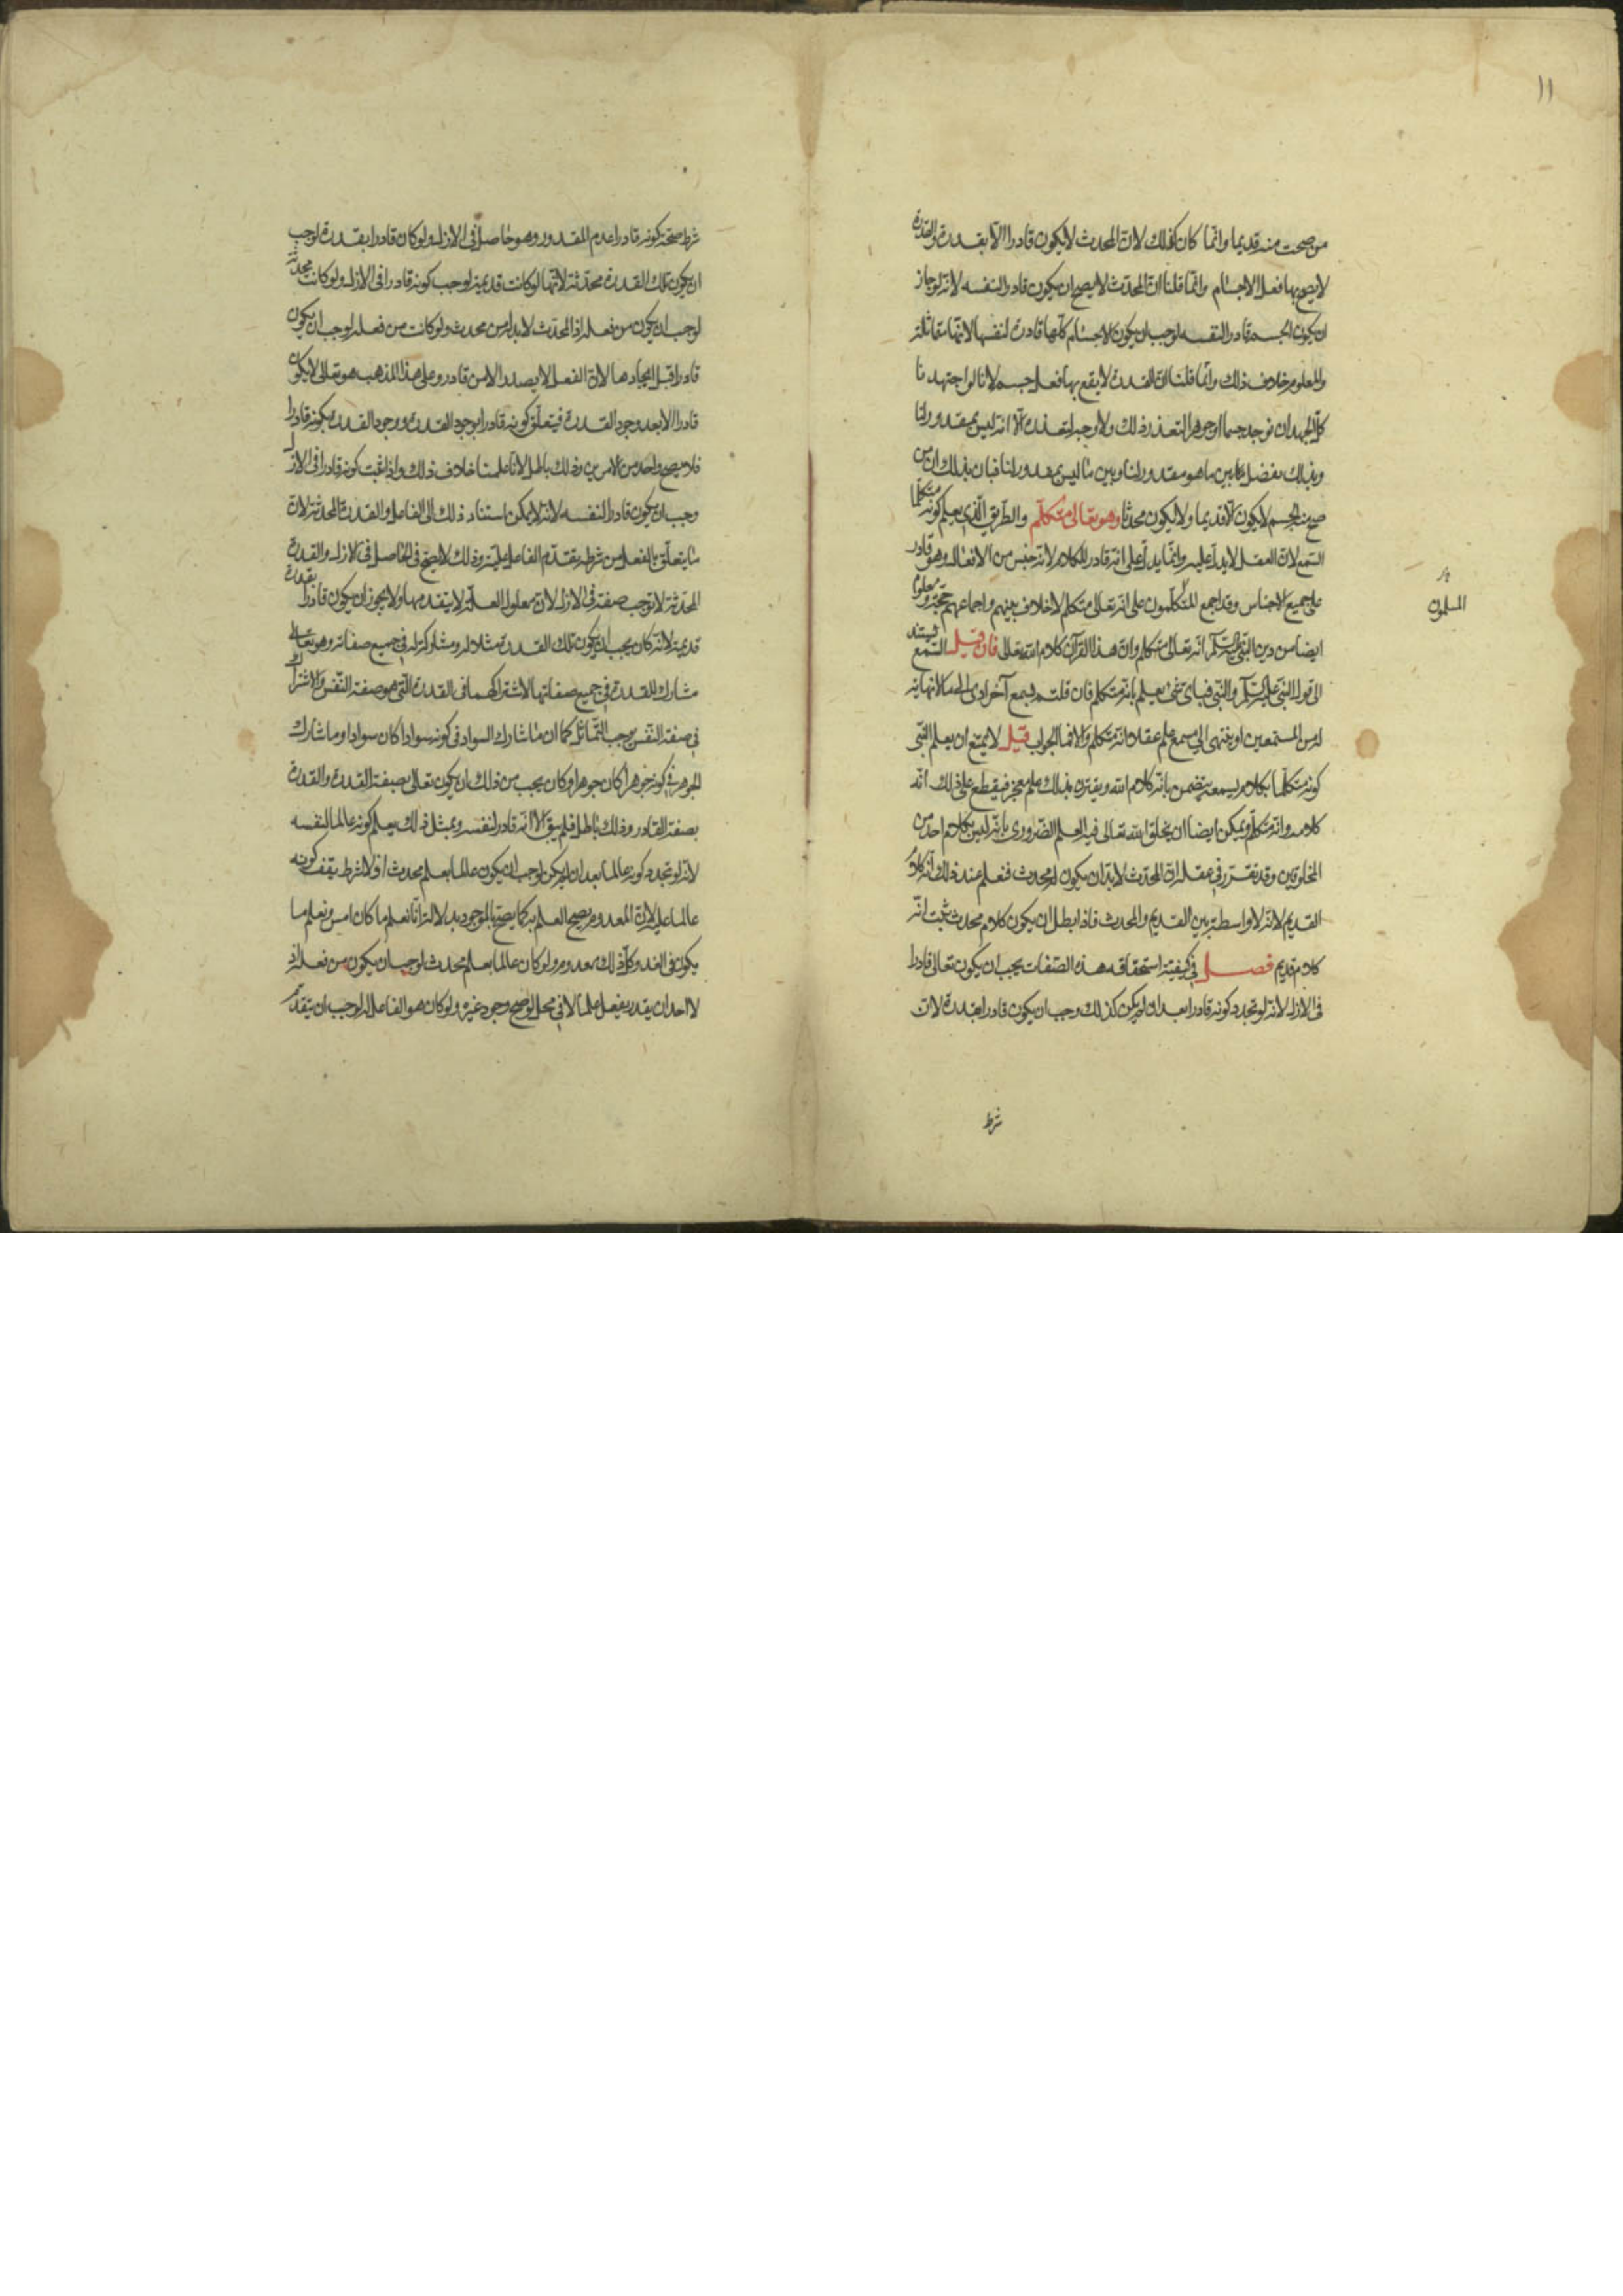 ١١
من صحت منه قديما وانّما كان كذلك لانّ المحدث لا يكون قادرا الّا بقدرة والقدرة
لا يصح بها فعل الاجسام وانّما قلنا انّ المحدث لا يصح ان يكون قادرا لنفسه لانه لو جاز
ان يكون الجسم قادرا لنفسه لوجب ان يكون الاجسام كلّها قادرة لنفسها لانّها متماثلة
والمعلوم خلاف ذلك وانّما قلنا انّ القدرة لا يقع بها فعل جسم لانا لو اجتهدنا
كلّ الجهد ان نوجد جسما او جوهرا لتعذر ذلك ولا وجه لتعذره الّا انه ليس بمقدور لنا
وبذلك نفضل ما بين ما هو مقدور لنا وبين ما ليس بمقدور لنا فبان بذلك ان من
صح منه الجسم لا يكون الّا قديما ولا يكون محدثا وهو تعالى متكلّم والطّريق الّذي به يعلم كونه متكلّما
السّمع لانّ العقل لا يدلّ عليه وانّما يدلّ على انّه قادر على الكلام لانّه جنس من الافعال وهو قادر
على جميع الاجناس وقد اجمع المتكلّمون على انّه تعالى متكلم لا خلاف بينهم واجماعهم حجّة ومعلوم
المسلمون
ايضا من دين النّبي عليه السّلم انّه تعالى متكلم وانّ هذا القرآن كلام الله تعالى فان قيل السّمع يستند
الى قول النّبي عليه السّلم والنّبي فباى شئ يعلم بانّه متكلم فان قلتم بسمع آخر ادى الى ما لا نهاية
له من المستمعين او ينتهى الى سمع علم عقلا انه متكلم والا فما الجواب قيل لا يمتنع ان يعلم النّبي
كونه متكلّما بكلام يسمعه يتضمن بانّه كلام الله ويقترن بذلك علم معجز فيقطع على ذلك انّه
كلامه وانّه متكلّم ويمكن ايضا ان يخلق الله تعالى فيه العلم الضّروري بانّه ليس بكلام احد من
المخلوقين وقد تقرّر في عقله انّ المحدث لا بدّ ان يكون له محدث فنعلم عند ذلك انّه كلام
القديم لانّه لا واسطة بين القديم والمحدث فاذا بطل ان يكون كلام محدث ثبت انّه
كلام قديم فصل في كيفيّة استحقاقه هذه الصّفات يجب ان يكون تعالى قادرا
فى الازل لانه لو تجدد كونه قادرا بعد ان لم يكن كذلك وجب ان يكون قادرا بقدرة لانّ
شرط
شرط صحّة كونه قادرا عدم المقدور وهو حاصل فى الازل ولو كان قادرا بقدرة لوجب
ان يكون تلك القدرة محدثة لانّها لو كانت قديمة لوجب كونه قادرا فى الازل ولو كانت محدثة
لوجب ان يكون من فعله اذ المحدث لا بد له من محدث ولو كانت من فعله لوجب ان يكون
قادرا قبل ايجادها لانّ الفعل لا يصدر الا من قادر وعلى هذا المذهب هو تعالى لا يكون
قادرا الا بعد وجود القدرة فيتعلّق كونه قادرا بوجود القدرة ووجود القدرة بكونه قادرا
فلا يصح واحد من الامرين وذلك باطل لانا علمنا خلاف ذلك واذا ثبت كونه قادرا فى الازل
وجب ان يكون قادرا لنفسه لانه لا يمكن استناد ذلك الى الفاعل والقدرة المحدثة لانّ
ما يتعلّق بالفعل من شرطه تقدّم الفاعل عليه وذلك لا يصح فى الحاصل فى الازل والقدرة
المحدثة لا توجب صفة فى الازل لانّ معلول العلّة لا يتقدمها ولا يجوز ان يكون قادرا بقدرة
قديمة لانّه كان يجب ان يكون تلك القدرة مثلا له ومشاركة له فى جميع صفاته وهو تعالى
مشارك للقدرة فى جميع صفاتها لاشتراكهما فى القدم الّتى هو صفة النّفس والاشتراك
فى صفة النّفس يوجب التّماثل كما ان ما شارك السواد فى كونه سوادا كان سوادا وما شارك
الجوهر فى كونه جوهرا كان جوهرا وكان يجب من ذلك ان يكون تعالى بصفة القدرة والقدرة
بصفة القادر وذلك باطل فلم يبق الا انّه قادر لنفسه وبمثل ذلك يعلم كونه عالما لنفسه
لانّه لو تجدد كونه عالما بعد ان لم يكن لوجب ان يكون عالما بعلم محدث اذ لا شرط يقف كونه
عالما عليه لانّ المعدوم يصح العلم به كما يصح بالموجود بدلالة انّا نعلم ما كان امس ونعلم ما
يكون فى الغد وكلّ ذلك معدوم ولو كان عالما بعلم محدث لوجب ان يكون من فعله اذ
لا احد ان يقدر يفعل علما لا فى محل لو صح وجود غيره ولو كان هو الفاعل له لوجب ان يتقدّم